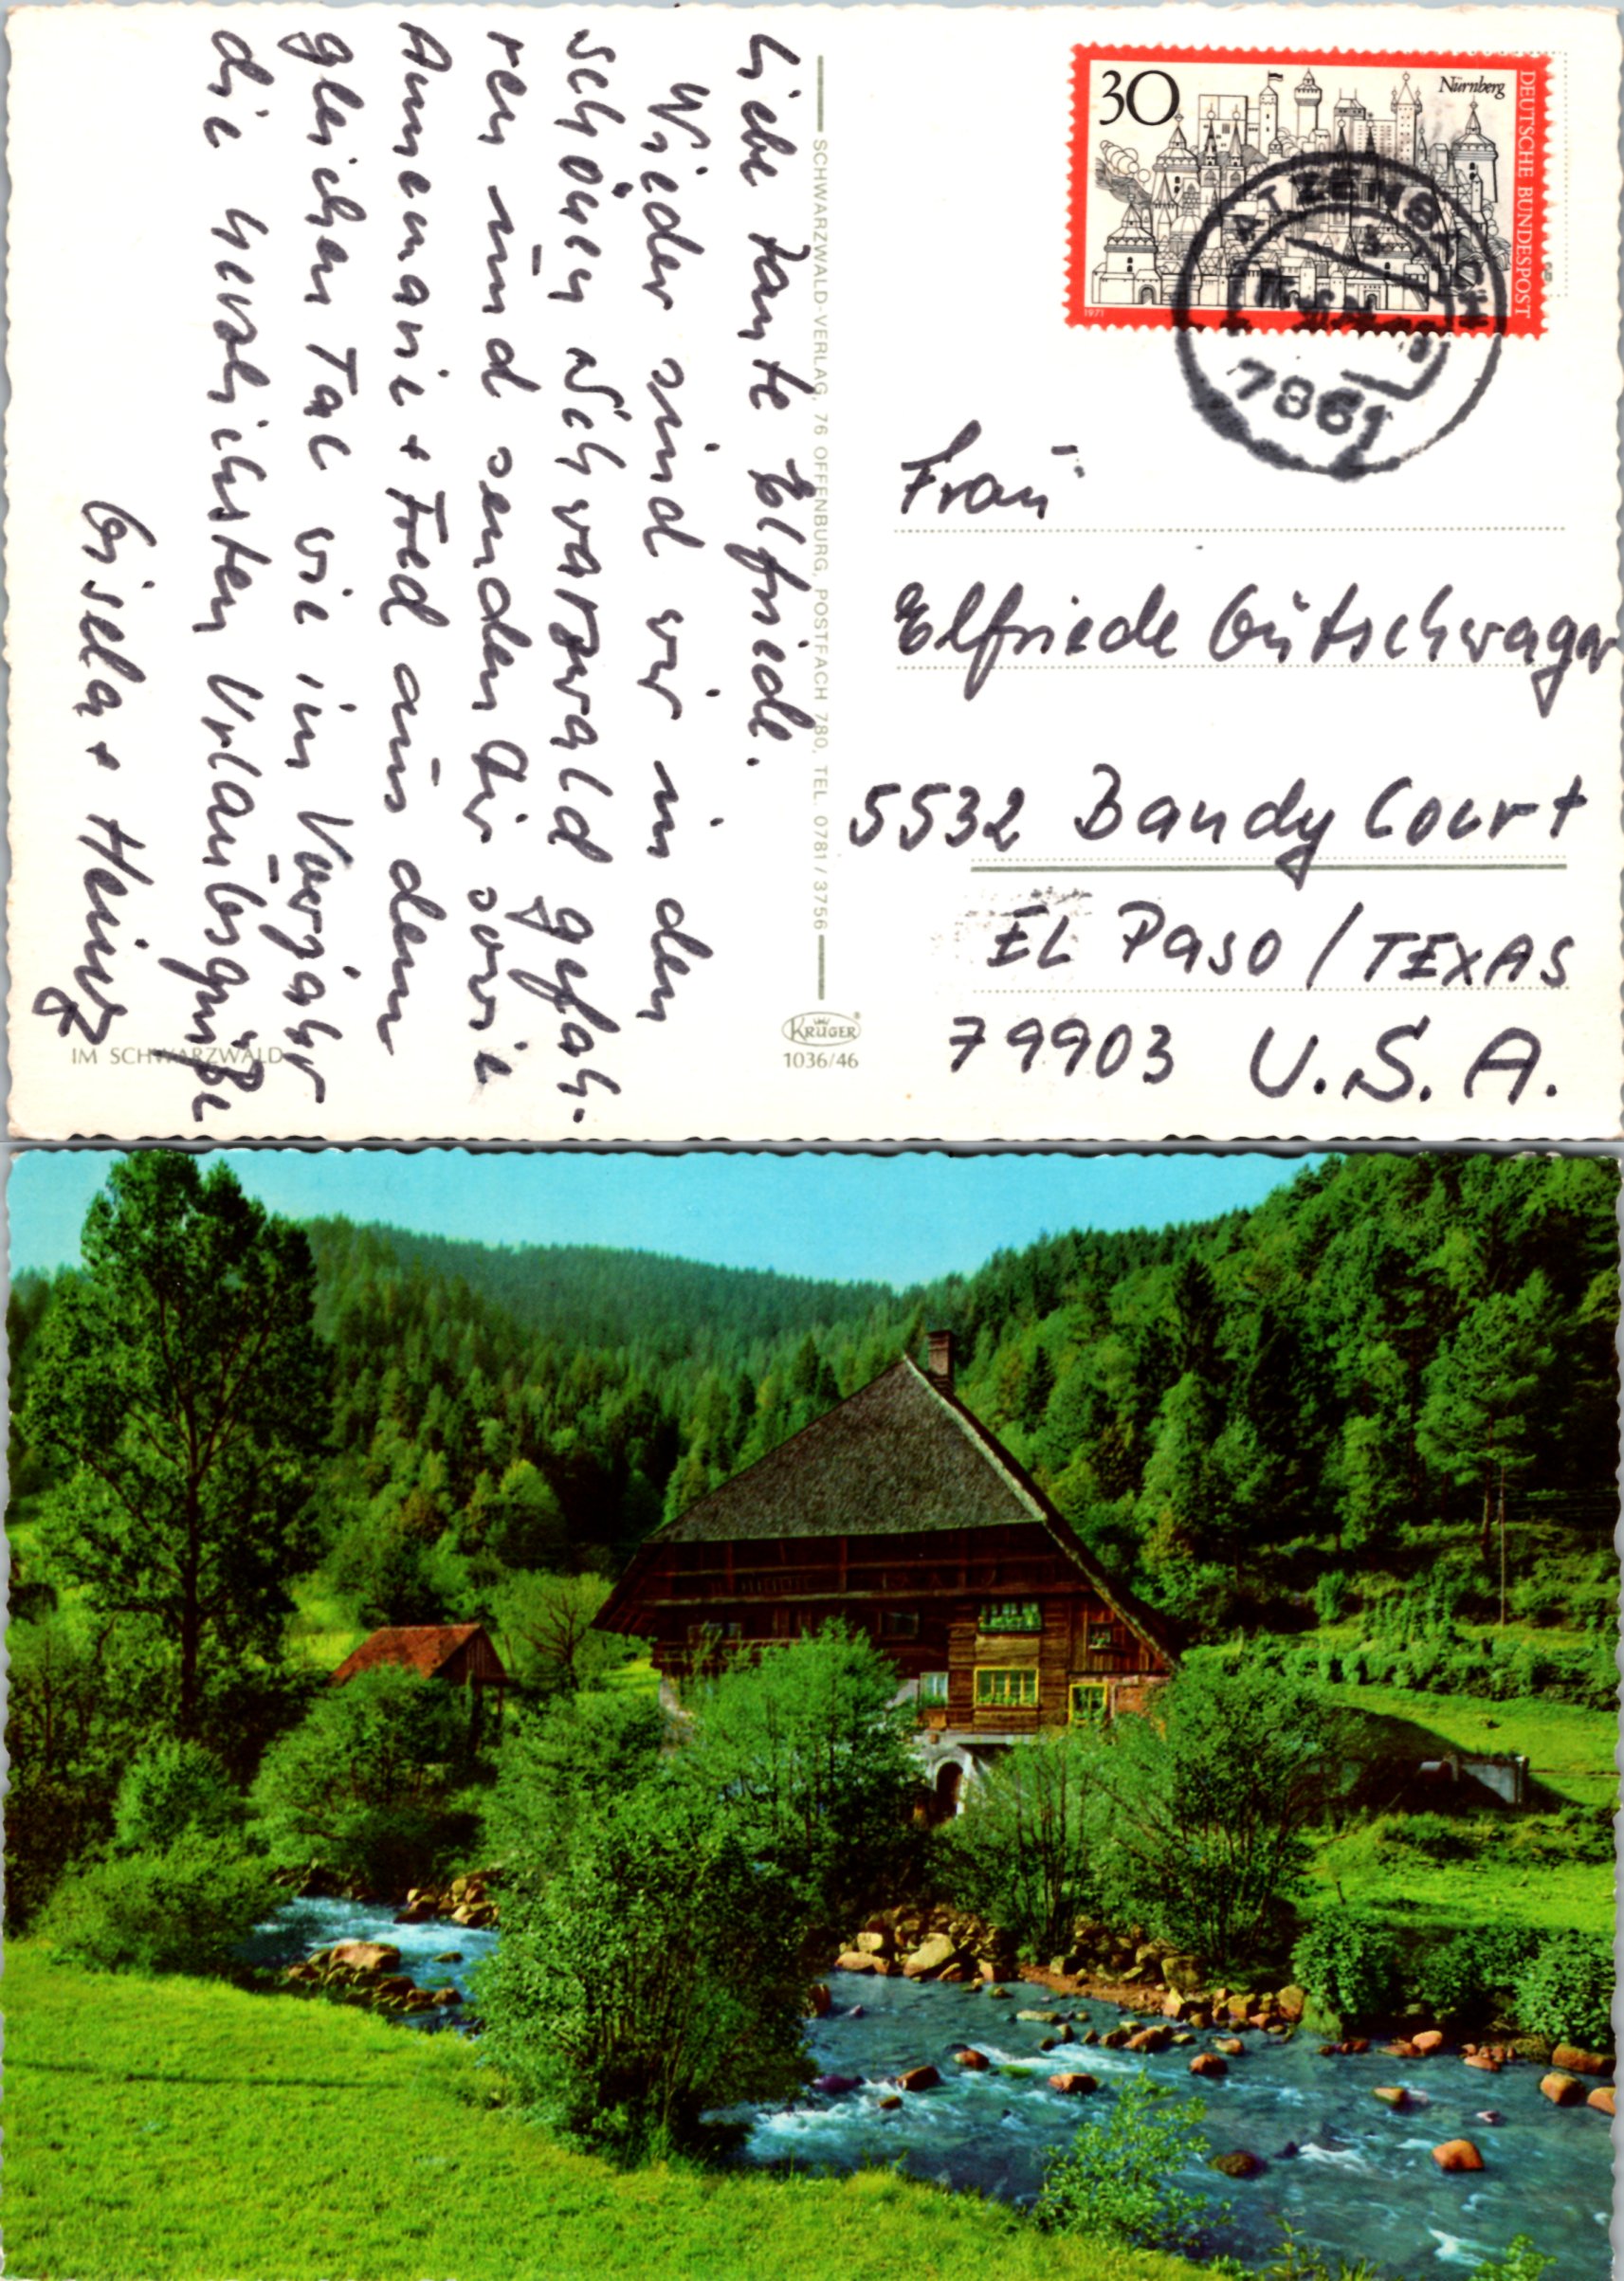 Liebe Tante Elfriede.
Wieder sind wir in den
schönen Schwarzwald gefah-
ren und senden Dir sowie
Annemarie + Fred aus dem
gleichen Tal wie im Vorjahr
die herzlichsten Urlaubsgrüße
Gisela + Heinz
IM SCHWARZWALD
SCHWARZWALD-VERLAG, 76 OFFENBURG, POSTFACH 780, TEL. 0781/3756
KRÜGER
1036/46
30
Nürnberg
DEUTSCHE BUNDESPOST
1971
ATZENBACH
7861
Frau
Elfriede Gutschwager
5532 Bandy Court
EL Paso / TEXAS
79903 U.S.A.